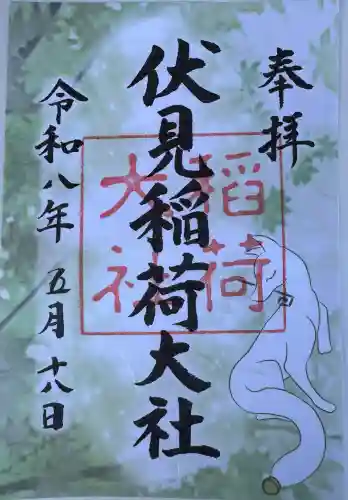 奉拝
伏見稲荷大社
稲荷
大社
令和八年 五月 十八日